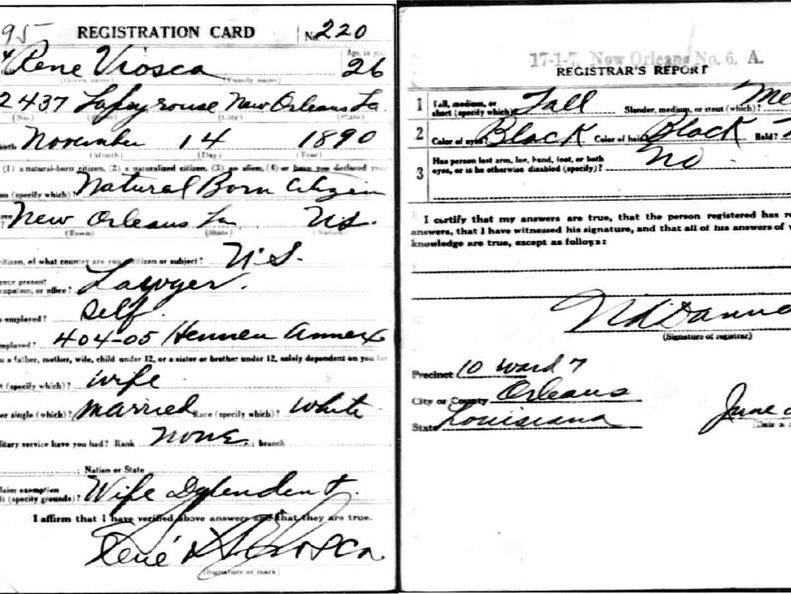 95 REGISTRATION CARD No. 220
Rene Viosca Age, in yrs. 26
(Given name) (Family name)
2437 Lapeyrouse New Orleans La
(No.) (City) (State)
birth November 14 1890
(Month) (Day) (Year)
(1) a natural-born citizen, (2) a naturalized citizen, (3) an alien, (4) or have you declared your
(specify which)? Natural Born Citizen
New Orleans La U.S.
(Town) (State) (Nation)
citizen, of what country are you a citizen or subject? U.S.
your present
occupation, or office? Lawyer.
employed? Self
employed? 404-05 Hennen Annex
a father, mother, wife, child under 12, or a sister or brother under 12, solely dependent on you for
(specify which)? Wife
or single (which)? Married Race (specify which)? White
military service have you had? Rank None; branch
; Nation or State
claim exemption
(specify grounds)? Wife Dependent.
I affirm that I have verified above answers and that they are true.
René Viosca
(Signature or mark)
17-1-7. New Orleans No. 6. A.
REGISTRAR'S REPORT
1 Tall, medium, or short (specify which)? Tall Slender, medium, or stout (which)? Me
2 Color of eyes? Black Color of hair? Black Bald?
3 Has person lost arm, leg, hand, foot, or both eyes, or is he otherwise disabled (specify)? No.
I certify that my answers are true, that the person registered has re
answers, that I have witnessed his signature, and that all of his answers of w
knowledge are true, except as follows:
(Signature of registrar)
Precinct 10 Ward 7
City or County Orleans
State Louisiana June